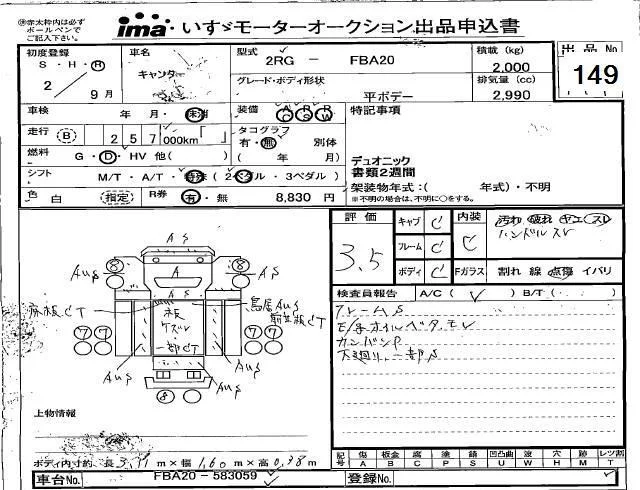 ㊟赤太枠内は必ず
ボールペンで
ご記入下さい。
ima いすゞモーターオークション出品申込書
初度登録 車名 型式 2RG － FBA20 積載 (kg) 2,000 出品No
S・H・R キャンター グレード・ボディ形状 排気量 (cc) 149
2 9月 平ボデー 2,990
車検 年 月・未消 装備 AC PS PW 特記事項
走行 B 257 000km「 」 タコグラフ
有・無 別体
燃料 G・D・HV 他( ) ( 年 月) デュオニック
書類2週間
シフト M/T・A/T・特殊 (2ペダル・3ペダル) 架装物年式：( 年式)・不明
※不明の場合は、不明に○をする。
色 白 (指定) R券 有・無 8,830 円
評価 3.5
キャブ C 内装 C 汚れ 破れ ヤニ スレ
ハンドルスレ
フレーム C
ボディ C Fガラス 割れ 線 点傷 イバリ
検査員報告 A/C( ✓ ) B/T( )
フレームS
カンバンP
下廻り一部S
AS
8 A 8
AuS AuS
床板CT 鳥居AuS
板
ケズレ
一部CT
7 7 7 7
AuS AuS
AuS
8
上物情報
ボディ内寸約 長 m×幅 1.60 m×高 0.38 m
記号 傷A 板金B 腐C 塗P 錆S 凹凸曲U 波W 穴H 跡M レツ割T
車台No. FBA20－583059 登録No.